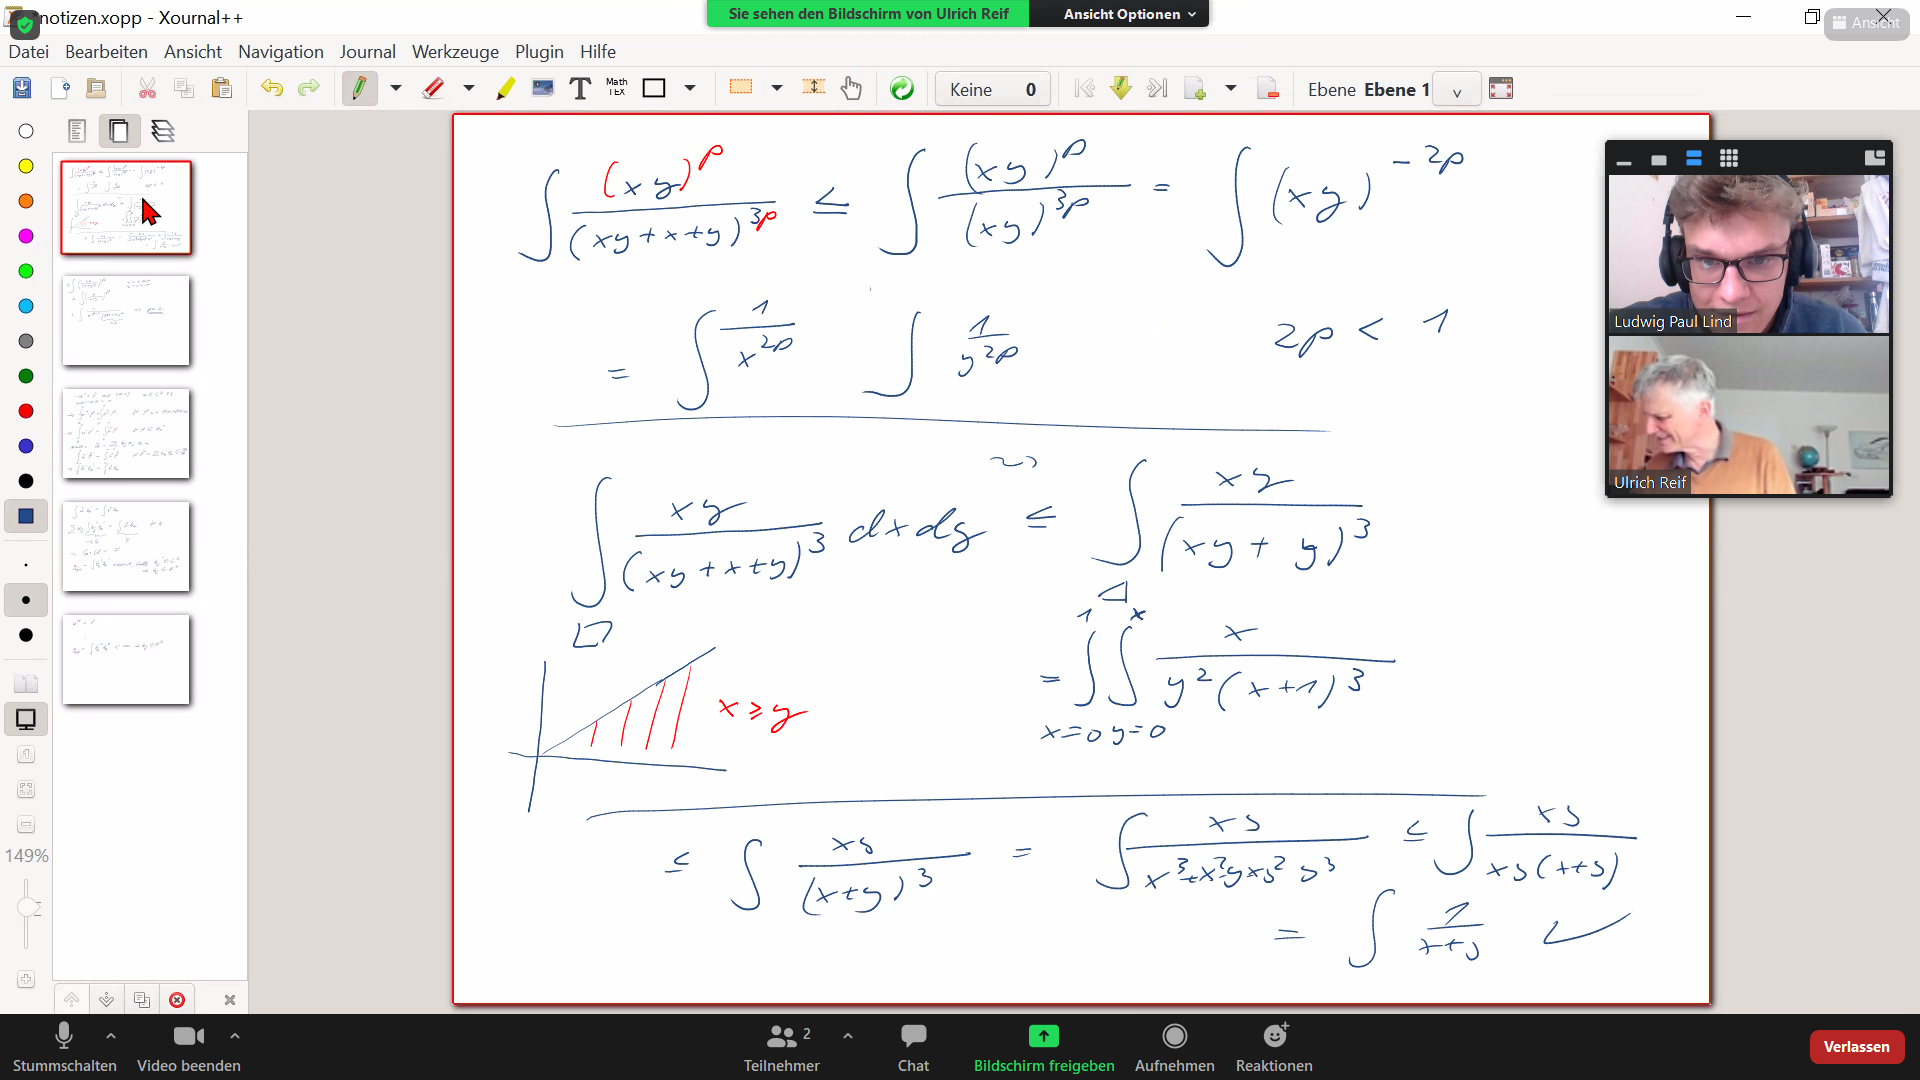 *notizen.xopp - Xournal++
Sie sehen den Bildschirm von Ulrich Reif
Ansicht Optionen
Ansicht
Datei Bearbeiten Ansicht Navigation Journal Werkzeuge Plugin Hilfe
Math TEX
Keine 0
Ebene Ebene 1
∫ (xy)^p / (xy+x+y)^{3p} ≤ ∫ (xy)^p / (xy)^{3p} = ∫ (xy)^{-2p}
= ∫ 1/x^{2p} ∫ 1/y^{2p} 2p < 1
∫ xy / (xy+x+y)^3 dxdy ≤ ∫ xy / (xy + y)^3
= ∫_{x=0}^{1} ∫_{y=0}^{x} x / y^2(x+1)^3
x ≥ y
≤ ∫ xy / (x+y)^3 = ∫ xy / x^3+x^2y xy^2 y^3 ≤ ∫ xy / xy(x+y)
= ∫ 1 / x+y ✓
Ludwig Paul Lind
Ulrich Reif
149%
Stummschalten
Video beenden
2
Teilnehmer
Chat
Bildschirm freigeben
Aufnehmen
Reaktionen
Verlassen